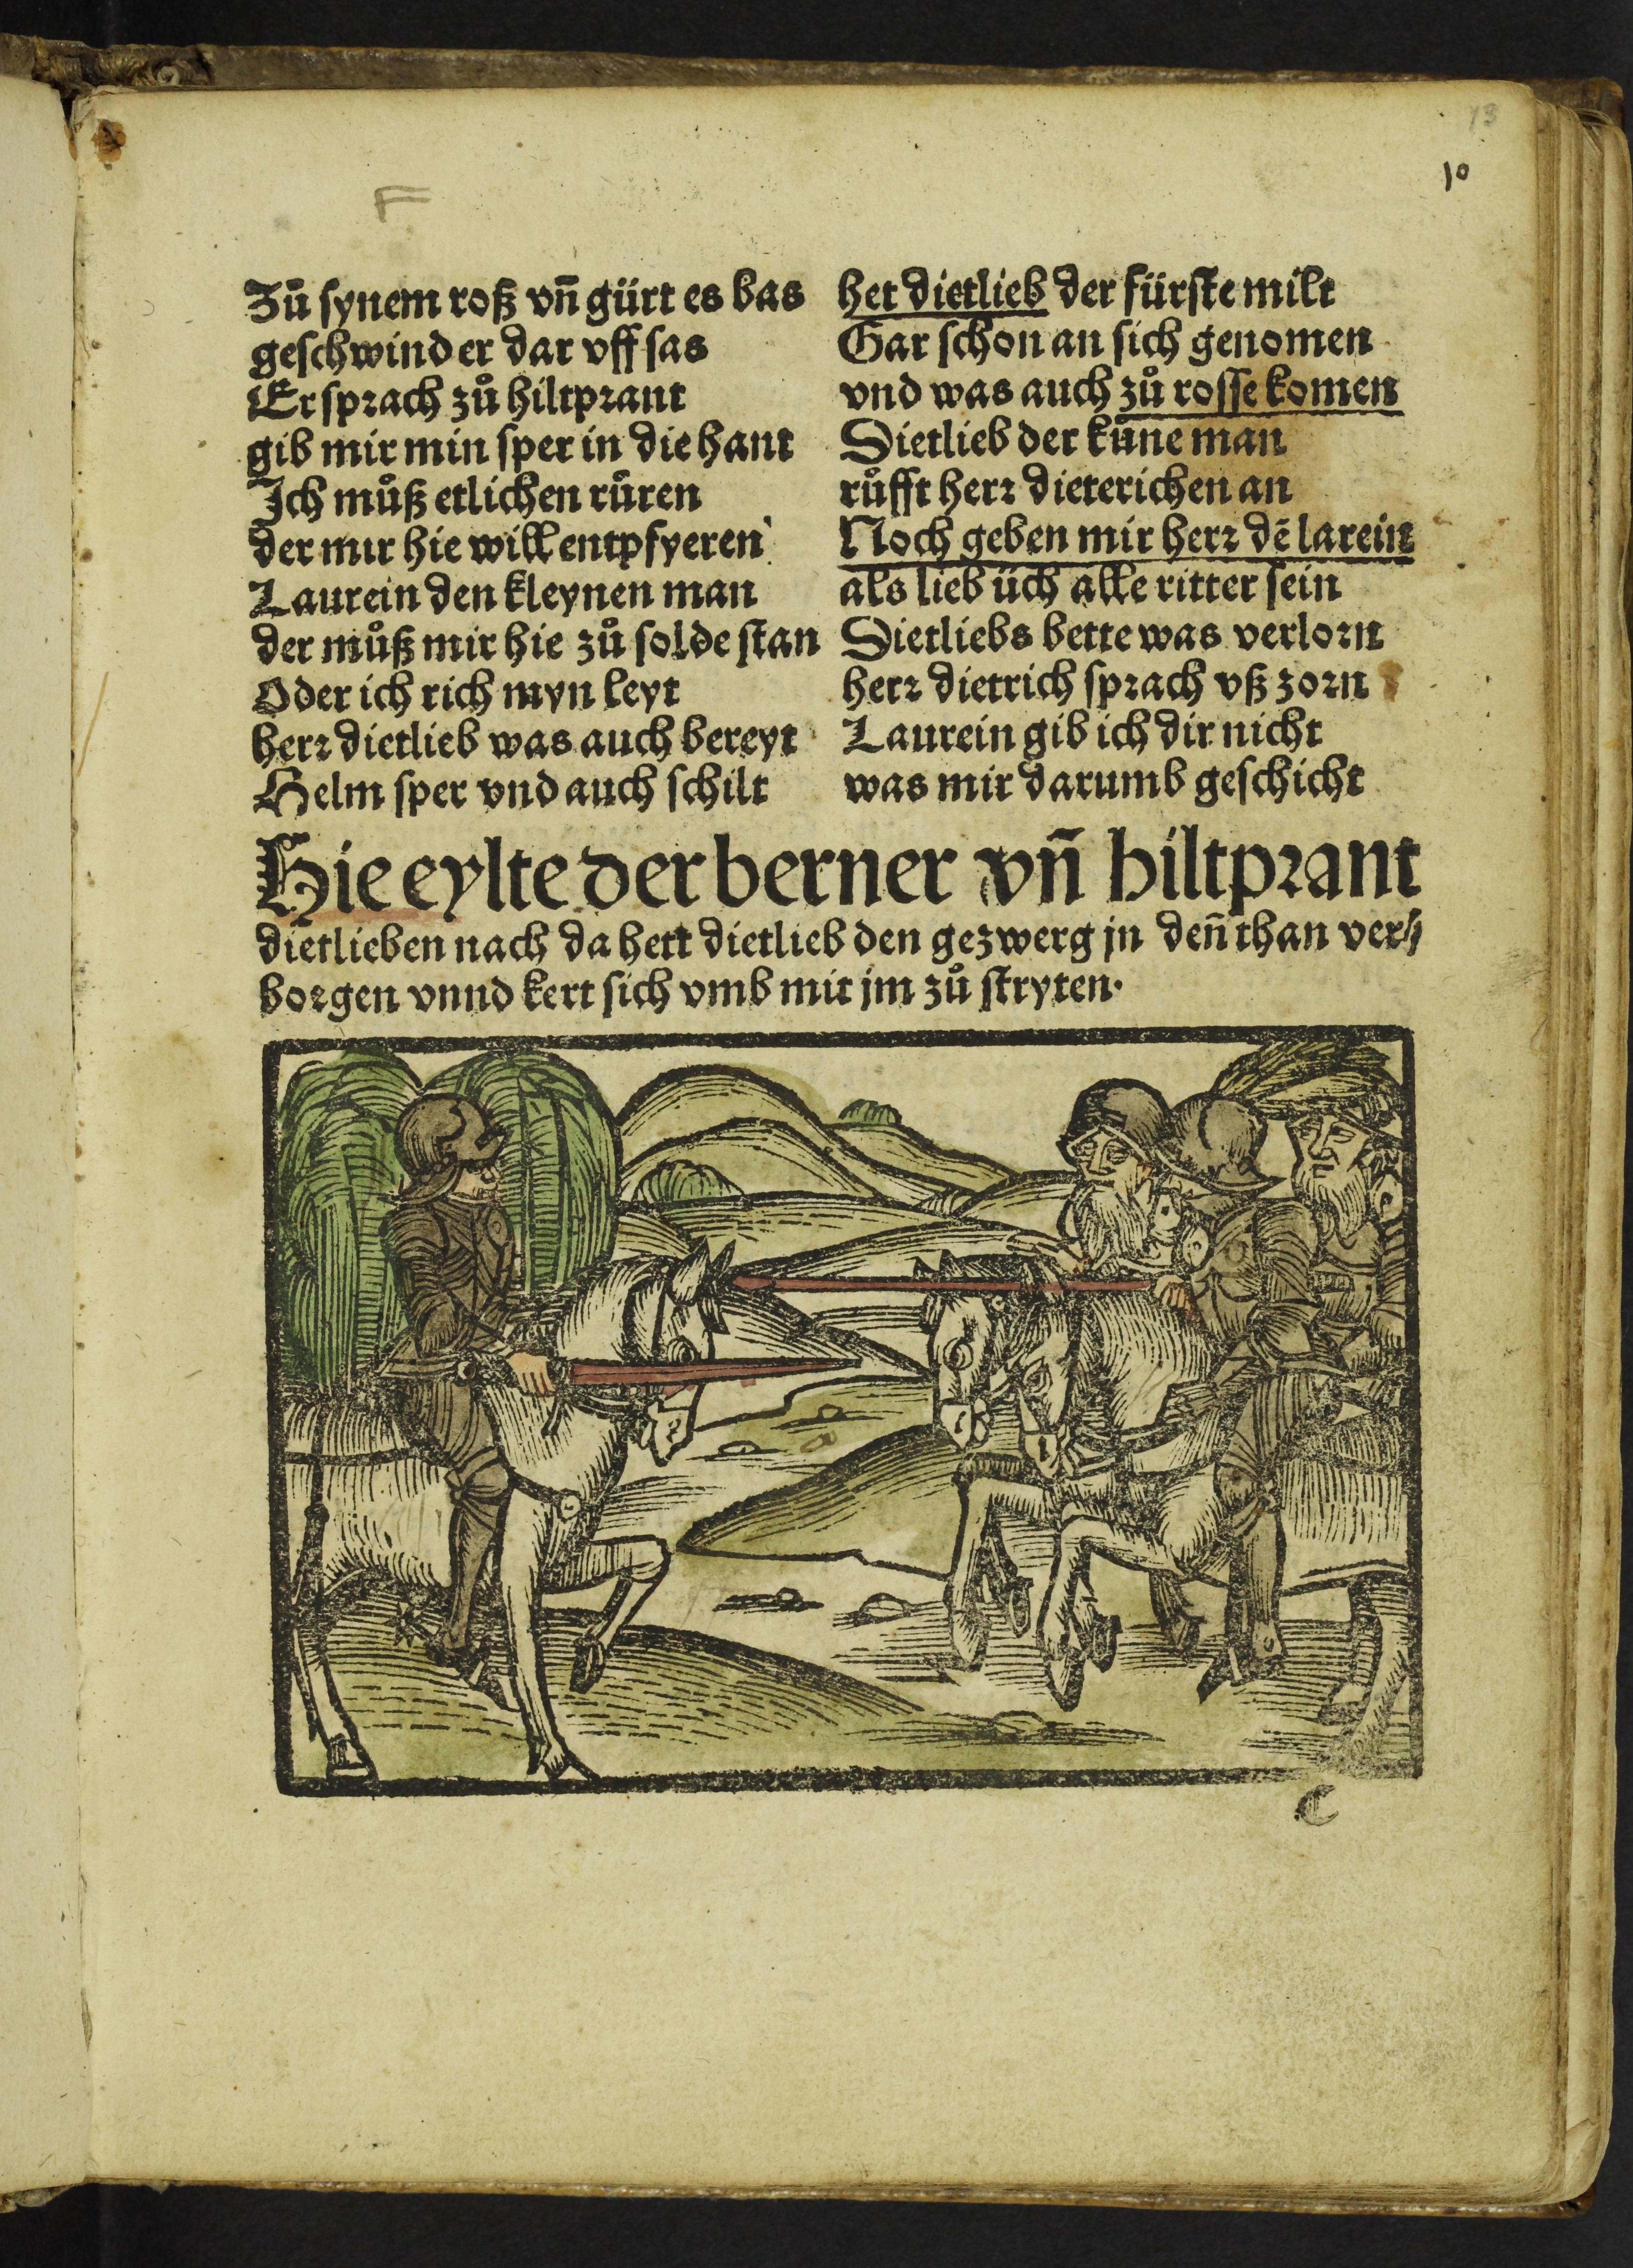 13
10
F
Zů synem roß vn̄ gürt es bas
geschwind er dar vff sas
Er sprach zů hiltprant
gib mir min sper in die hant
Ich můß etlichen růren
der mir hie will entpfyeren
Laurein den kleynen man
der můß mir hie zů solde stan
Oder ich rich myn leyt
herr dietlieb was auch bereyt
Helm sper vnd auch schilt
het dietlieb der fürste milt
Gar schon an sich genomen
vnd was auch zů rosse komen
Dietlieb der kůne man
růfft herr dieterichen an
Noch geben mir herr dē larein
als lieb üch alle ritter sein
Dietliebs bette was verlorn
herr dietrich sprach vß zorn
Laurein gib ich dir nicht
was mir darumb geschicht
Hie eylte der berner vn̄ hiltprant
dietlieben nach da hett dietlieb den gezwerg jn den̄ than ver⸗
borgen vnnd kert sich vmb mit jm zů stryten.
C